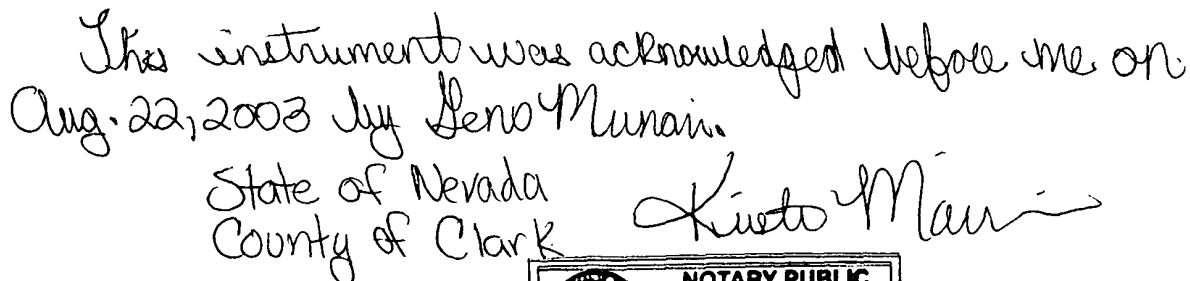 This instrument was acknowledged before me on
Aug. 22, 2003 by Geno Munari.
State of Nevada
County of Clark
NOTARY PUBLIC